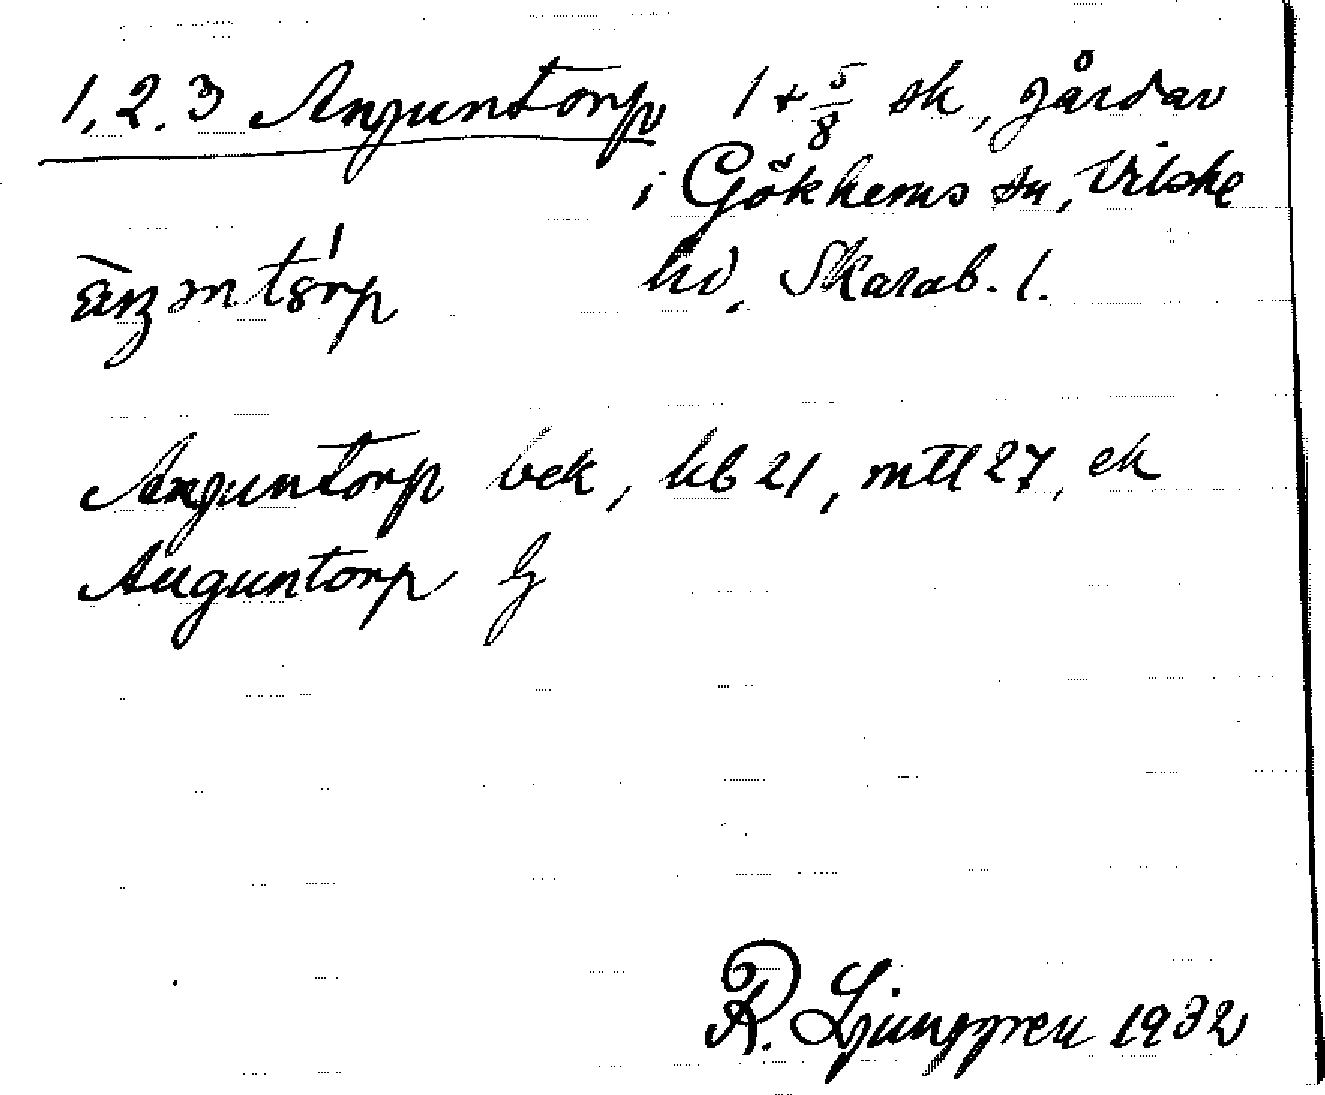 1, 2. 3 Anguntorp 1 + 5/8 sk, gårdar
i Gökhems sn, Vilske
hd, Skarab. l.
Anguntorp bek, kb 21, mtl 27, ek
Auguntorp G
R. Ljunggren 1932